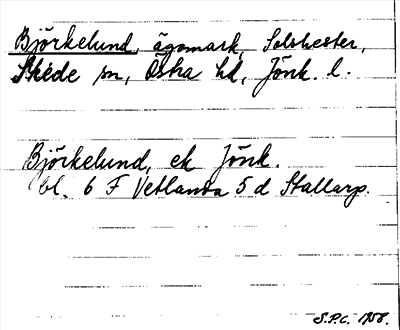 Björkelund, ägomark, Solshester,
Skede sn, Östra hd, Jönk. l.
Björkelund, ek Jönk.
bl. 6 F Vetlanda 5 d Stallarp.
S.P.C. 1958.